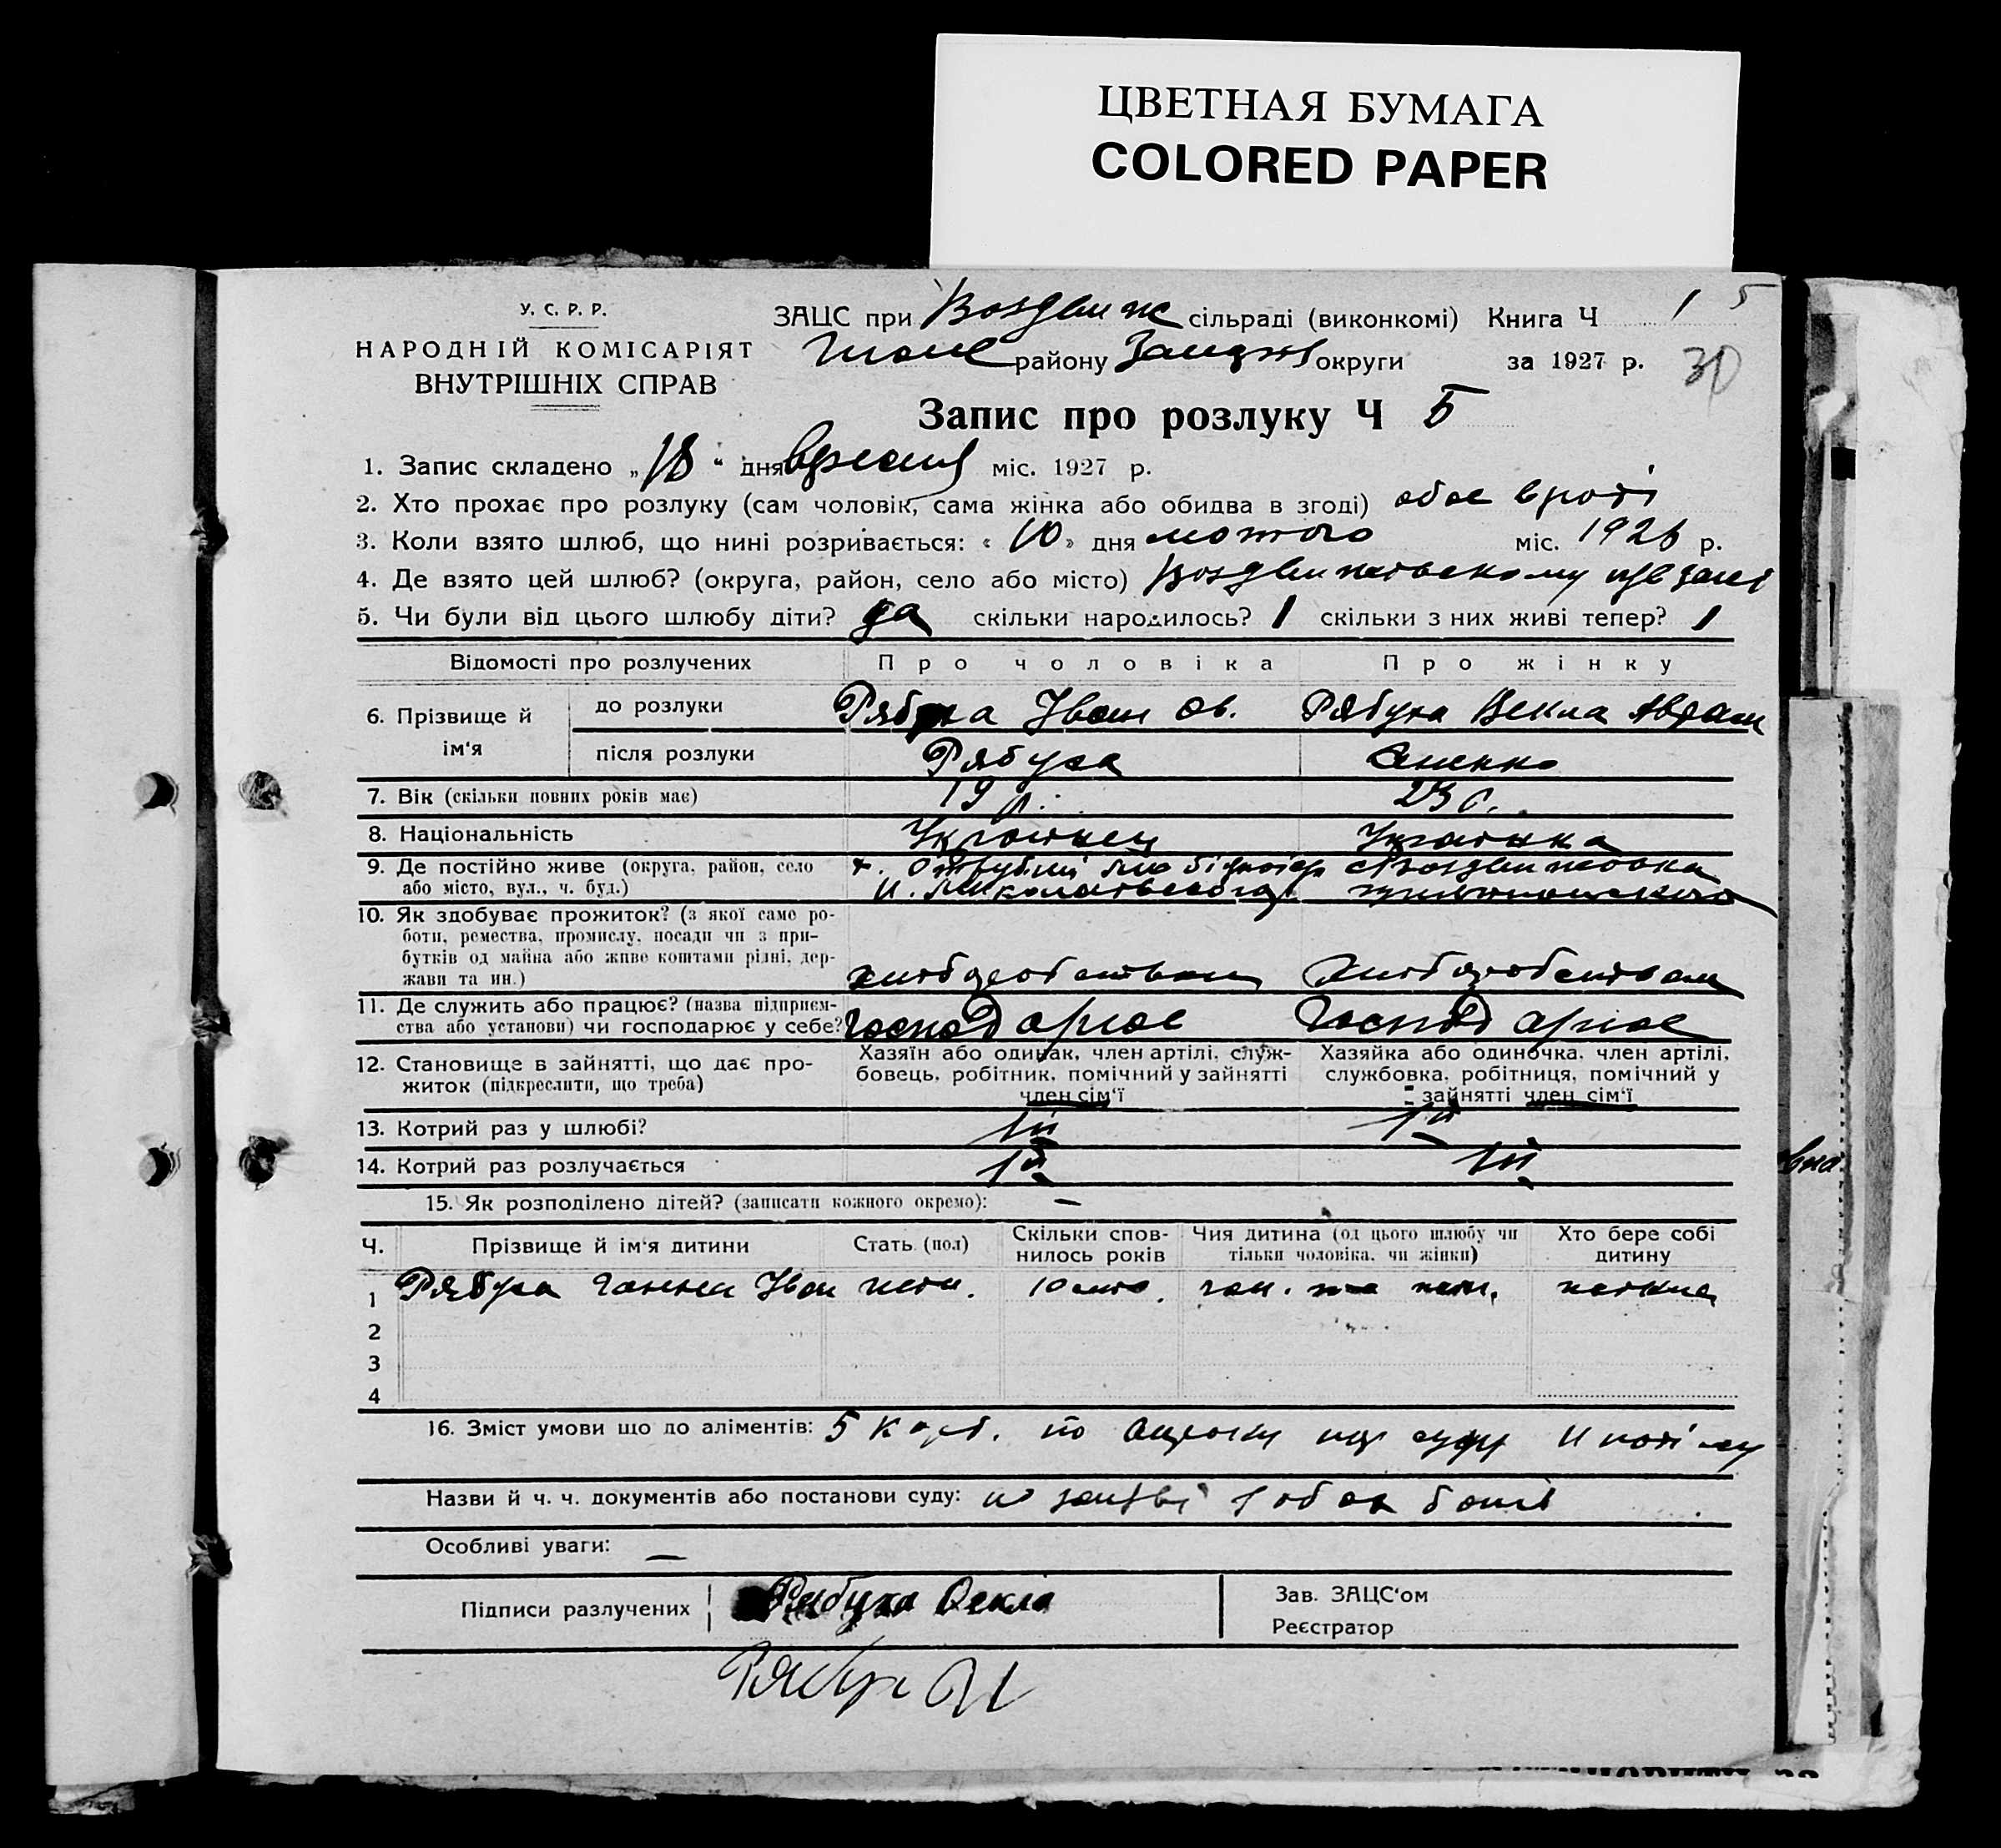 ЦВЕТНАЯ БУМАГА
COLORED PAPER
У. С. Р. Р.
НАРОДНІЙ КОМІСАРІЯТ
ВНУТРІШНІХ СПРАВ
ЗАЦС при Воздвиж сільраді (виконкомі) Книга Ч 1 5
району округи за 1927 р. 30
Запис про розлуку Ч 5
1. Запис складено „18“ дня вресня міс. 1927 р.
2. Хто прохає про розлуку (сам чоловік, сама жінка або обидва в згоді) обоє
3. Коли взято шлюб, що нині розривається: «10» дня лютого міс. 1926 р.
4. Де взято цей шлюб? (округа, район, село або місто) Воздвиженському
5. Чи були від цього шлюбу діти? да скільки народилось? 1 скільки з них живі тепер? 1
Відомості про розлучених Про чоловіка Про жінку
6. Прізвище й ім‘я
до розлуки Рябуха Іван Ов. Рябуха Векла Аврам
після розлуки Рябуха
7. Вік (скільки повних років має) 19 р. 23 р.
8. Національність Українец Українка
9. Де постійно живе (округа, район, село
або місто, вул., ч. буд.)
х. Отрубний с. Воздвиженовка
Миколаївського
10. Як здобуває прожиток? (з якої саме ро-
боти, ремества, промислу, посади чи з при-
бутків од майна або живе коштами рідні, дер-
жави та ин.)
хлібодобством хлібодобством
11. Де служить або працює? (назва підприєм-
ства або установи) чи господарює у себе?
господарює господарює
12. Становище в зайнятті, що дає про-
житок (підкреслити, що треба)
Хазяїн або одинак, член артілі, служ-
бовець, робітник, помічний у зайнятті
член сім‘ї
Хазяйка або одиночка, член артілі,
службовка, робітниця, помічний у
зайнятті член сім‘ї
13. Котрий раз у шлюбі? 1й 1й
14. Котрий раз розлучається 1й 1й
15. Як розподілено дітей? (записати кожного окремо): —
Ч. Прізвище й ім‘я дитини Стать (пол) Скільки спов-
нилось років Чия дитина (од цього шлюбу чи
тільки чоловіка, чи жінки) Хто бере собі
дитину
1 Рябуха Ганна Іван жен. чол. та жен.
2
3
4
16. Зміст умови що до аліментів: 5 карб. по
Назви й ч. ч. документів або постанови суду: по заяві
Особливі уваги: —
Підписи разлучених Рябуха Векла
Зав. ЗАЦС‘ом
Реєстратор
вна